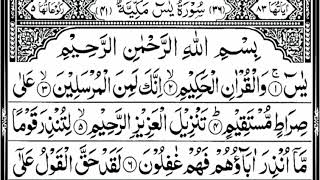 اٰیَاتُهَا ٨٣ (٣٦) سُوْرَةُ يٰسٓ مَكِّيَّةٌ (٤١) رُكُوْعَاتُهَا ٥
بِسْمِ اللّٰهِ الرَّحْمٰنِ الرَّحِيْمِ
يٰسٓ ۝١ وَالْقُرْاٰنِ الْحَكِيْمِ ۝٢ اِنَّكَ لَمِنَ الْمُرْسَلِيْنَ ۝٣ عَلٰى
صِرَاطٍ مُّسْتَقِيْمٍ ۝٤ تَنْزِيْلَ الْعَزِيْزِ الرَّحِيْمِ ۝٥ لِتُنْذِرَ قَوْمًا
مَّاۤ اُنْذِرَ اٰبَآؤُهُمْ فَهُمْ غٰفِلُوْنَ ۝٦ لَقَدْ حَقَّ الْقَوْلُ عَلٰۤى